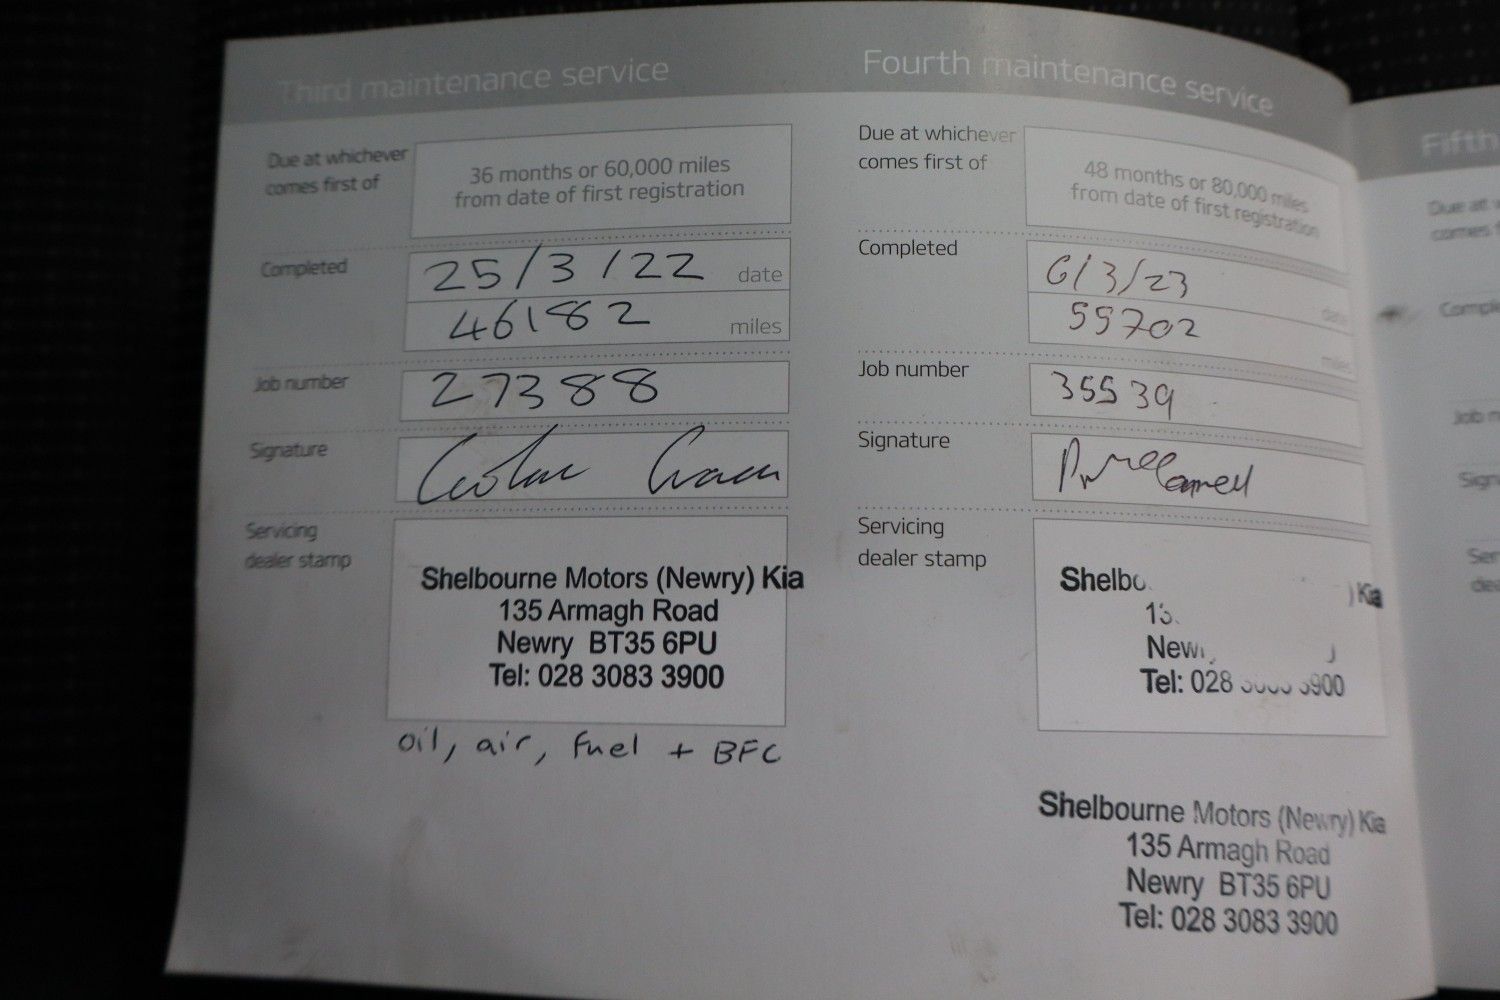 Third maintenance service
Due at whichever
comes first of
36 months or 60,000 miles
from date of first registration
Completed
25/3/22 date
46182 miles
Job number
27388
Signature
Servicing
dealer stamp
Shelbourne Motors (Newry) Kia
135 Armagh Road
Newry BT35 6PU
Tel: 028 3083 3900
oil, air, fuel + BFC
Fourth maintenance service
Due at whichever
comes first of
48 months or 80,000 miles
from date of first registration
Completed
6/3/23 date
55702 miles
Job number
35539
Signature
Servicing
dealer stamp
Shelbo ) Kia
13
New
Tel: 028 3900
Shelbourne Motors (Newry) Kia
135 Armagh Road
Newry BT35 6PU
Tel: 028 3083 3900
Fifth
Due at
comes
Comple
Job n
Sign
Ser
dea